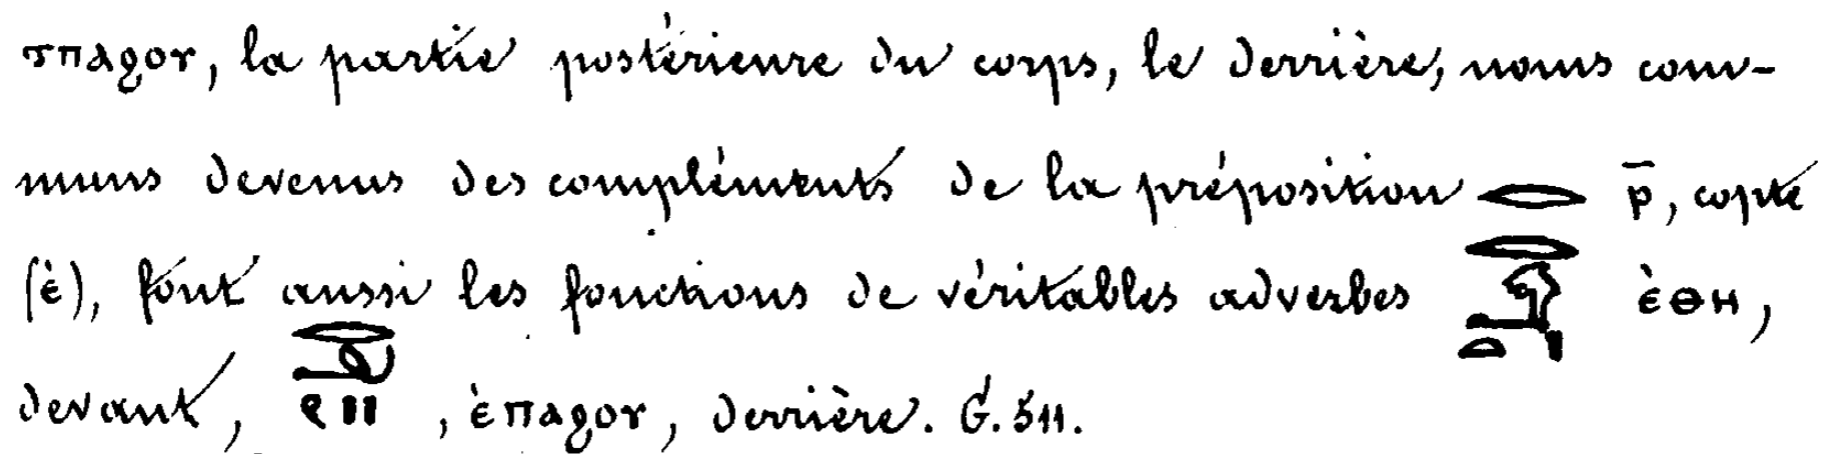 ⲡⲁϩⲟⲩ, la partie postérieure du corps, le derrière, noms com-
muns devenus des compléments de la préposition 𓂋 ⲣ̄, copte
(ⲉ̀), font aussi les fonctions de véritables adverbes ⲉ̀ⲑⲏ,
devant, , ⲉ̀ⲡⲁϩⲟⲩ, derrière. G. 511.